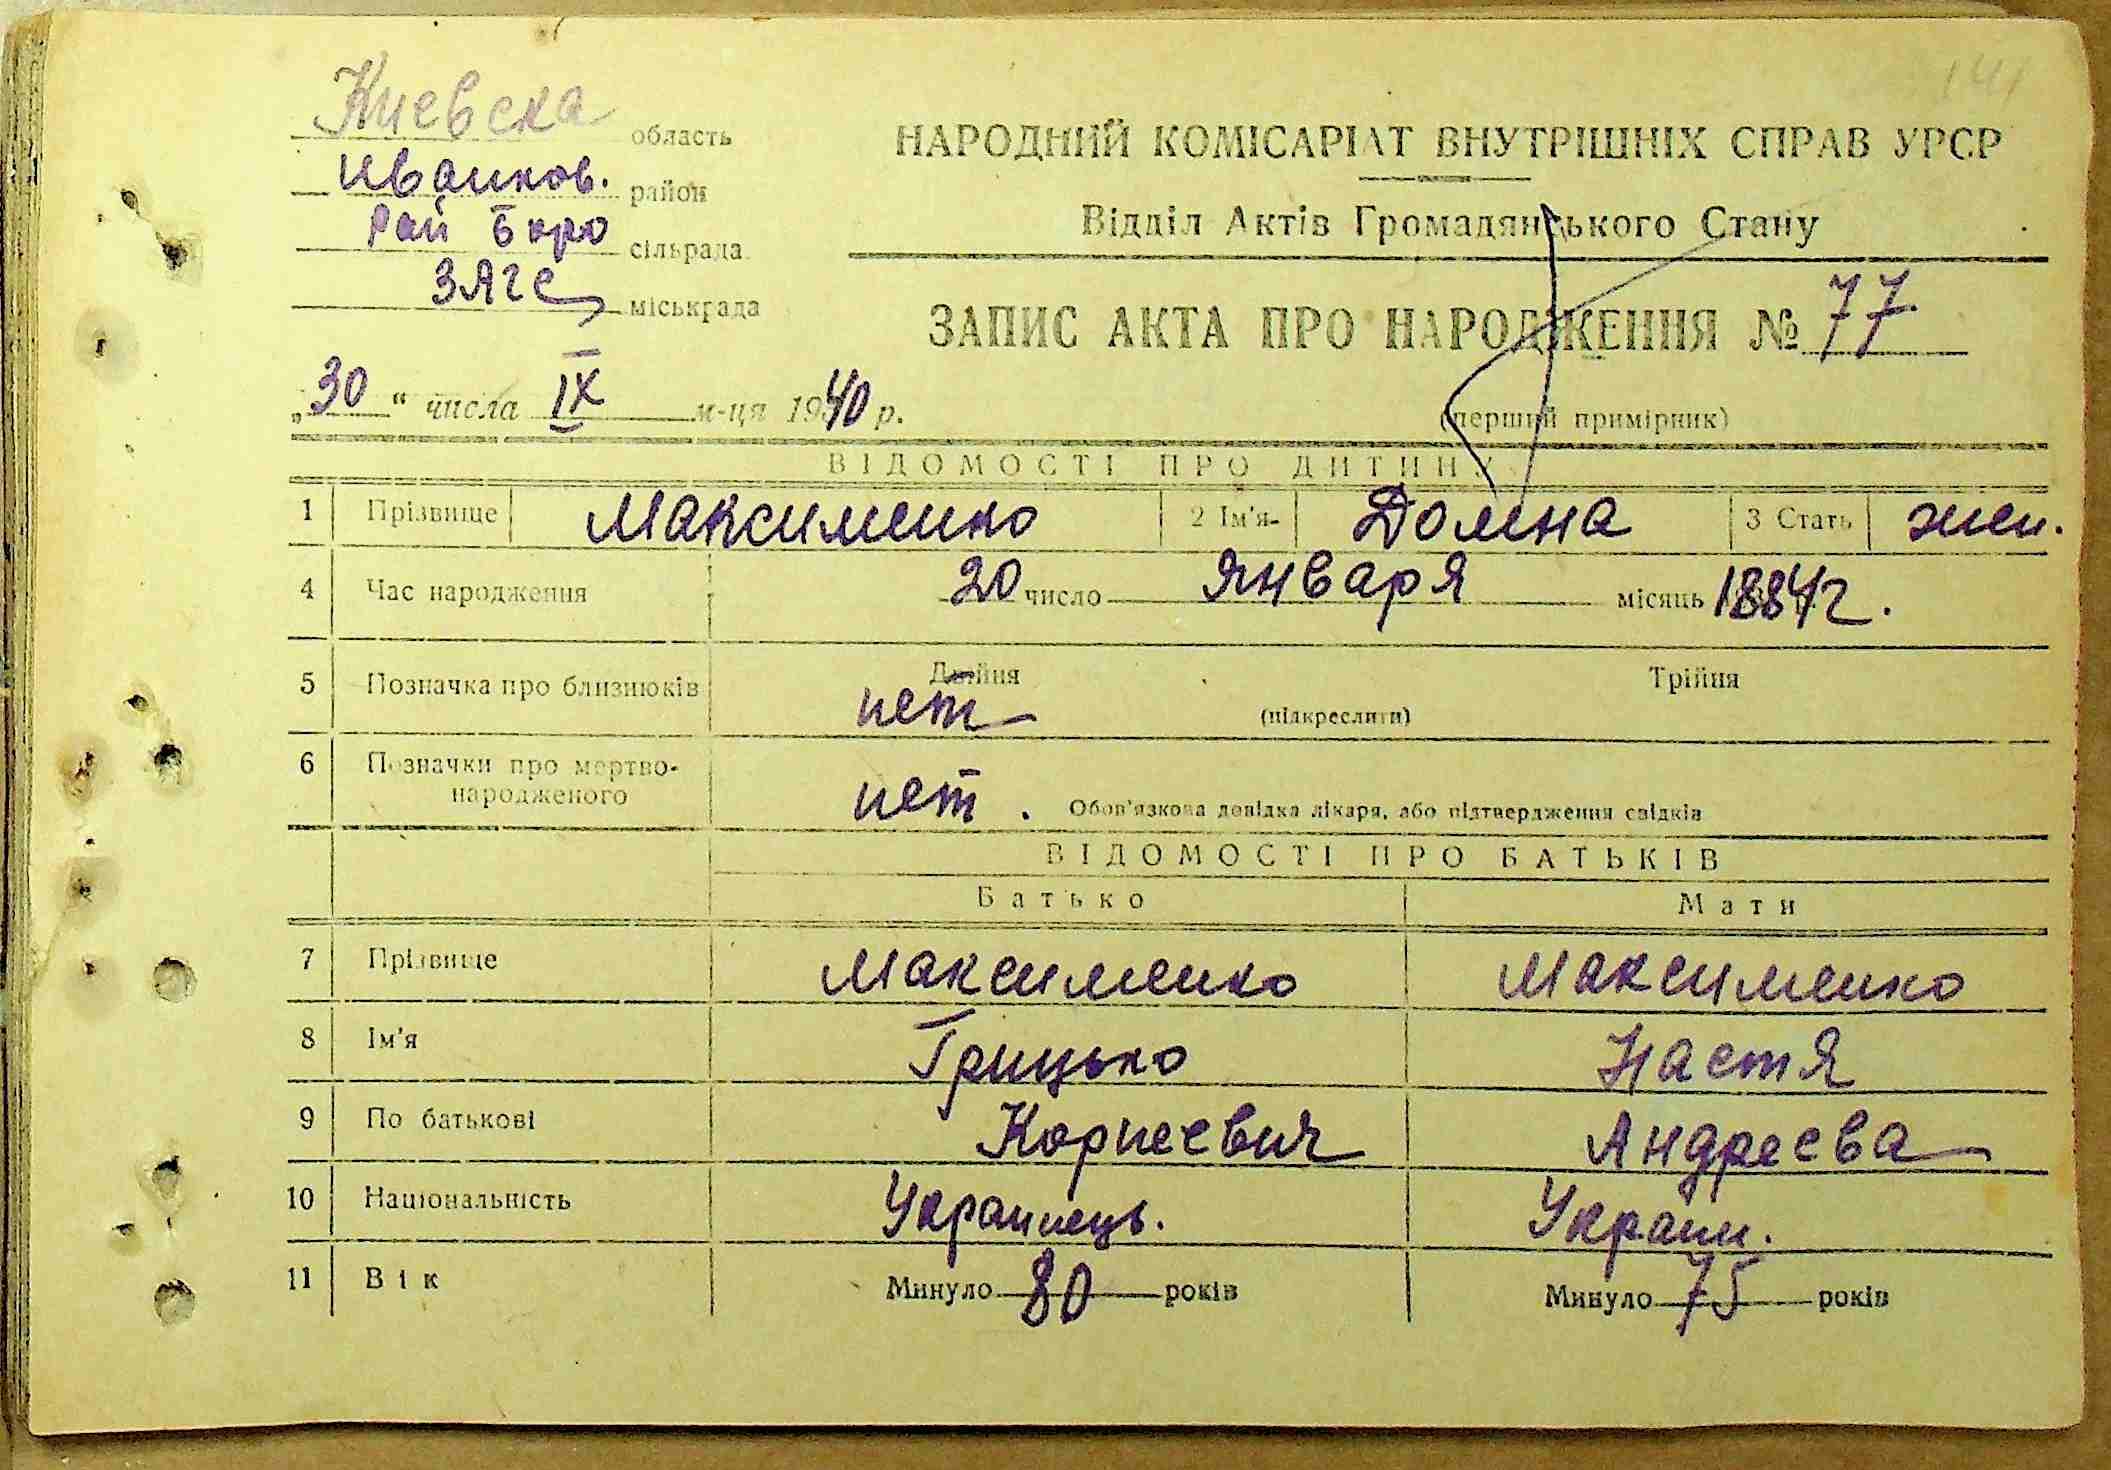 141
Киевска область
Иванков. район
Рай бюро сільрада
ЗАГС міськрада
НАРОДНИЙ КОМІСАРІАТ ВНУТРІШНІХ СПРАВ УРСР
Відділ Актів Громадянського Стану
ЗАПИС АКТА ПРО НАРОДЖЕННЯ № 77
„30“ числа IX м-ця 1940 р.
(перший примірник)
ВІДОМОСТІ ПРО ДИТИНУ
1 Прізвище Максименко 2 Ім'я- Домна 3 Стать жен.
4 Час народження 20 число Января місяць 1884 г.
5 Позначка про близнюків Двійня нет (підкреслити) Трійня
6 Позначки про мертво-
народженого нет. Обов'язкова довідка лікаря, або підтвердження свідків
ВІДОМОСТІ ПРО БАТЬКІВ
Батько Мати
7 Прізвище Максименко Максименко
8 Ім'я Грицько Настя
9 По батькові Корнеевич Андреева
10 Національність Украинець. Украин.
11 Вік Минуло 80 років Минуло 75 років